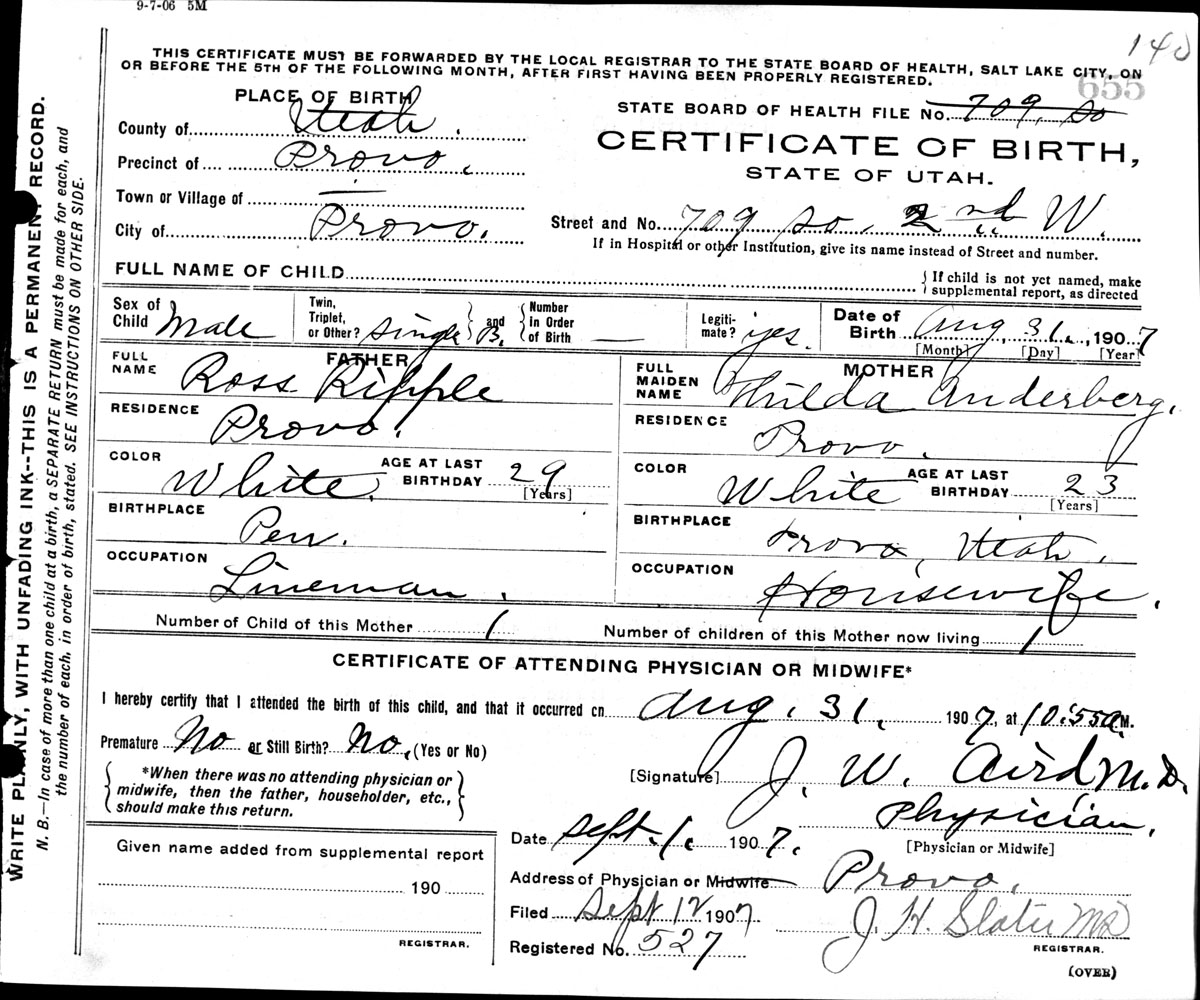 9-7-06 5M
140
THIS CERTIFICATE MUST BE FORWARDED BY THE LOCAL REGISTRAR TO THE STATE BOARD OF HEALTH, SALT LAKE CITY, ON
OR BEFORE THE 5TH OF THE FOLLOWING MONTH, AFTER FIRST HAVING BEEN PROPERLY REGISTERED.
655
PLACE OF BIRTH
STATE BOARD OF HEALTH FILE No. 709. So
County of Utah.
CERTIFICATE OF BIRTH,
STATE OF UTAH.
Precinct of Provo.
Town or Village of —
City of Provo.
Street and No. 709 So. 2nd W.
If in Hospital or other Institution, give its name instead of Street and number.
FULL NAME OF CHILD
{ If child is not yet named, make supplemental report, as directed
Sex of Child Male
Twin, Triplet, or Other? single } and { Number in Order of Birth —
B.
Legiti- mate? yes.
Date of Birth Aug. 31., 1907
[Month] [Day] [Year]
FATHER
FULL NAME Ross Ripple
RESIDENCE Provo.
COLOR White. AGE AT LAST BIRTHDAY 29 [Years]
BIRTHPLACE Pen.
OCCUPATION Lineman.
MOTHER
FULL MAIDEN NAME Thilda Anderberg.
RESIDENCE Provo.
COLOR White AGE AT LAST BIRTHDAY 23 [Years]
BIRTHPLACE Provo, Utah.
OCCUPATION Housewife.
Number of Child of this Mother 1 Number of children of this Mother now living 1
CERTIFICATE OF ATTENDING PHYSICIAN OR MIDWIFE*
I hereby certify that I attended the birth of this child, and that it occurred on Aug. 31. 1907, at 10:55 a.M.
Premature No or Still Birth? No. (Yes or No)
{ *When there was no attending physician or midwife, then the father, householder, etc., should make this return. }
[Signature] J. W. Aird M.D.
Physician.
[Physician or Midwife]
Date Sept. 1. 1907.
Address of Physician or Midwife Provo.
Filed Sept 12 1907
J. H. Slater MD
REGISTRAR.
Registered No. 527
(OVER)
Given name added from supplemental report
190
REGISTRAR.
WRITE PLAINLY, WITH UNFADING INK--THIS IS A PERMANENT RECORD.
N. B.—In case of more than one child at a birth, a SEPARATE RETURN must be made for each, and
the number of each, in order of birth, stated. SEE INSTRUCTIONS ON OTHER SIDE.